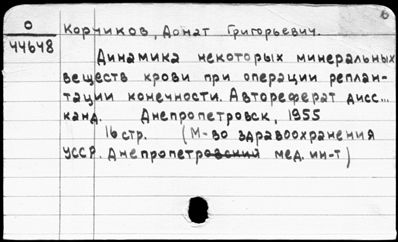 О Корчиков, Донат Григорьевич.
44648
Динамика некоторых минеральных
веществ крови при операции реплан-
тации конечности. Автореферат дисс...
канд. Днепропетровск, 1955
16 стр. (М-во здравоохранения
УССР. Днепропетровский мед. ин-т)